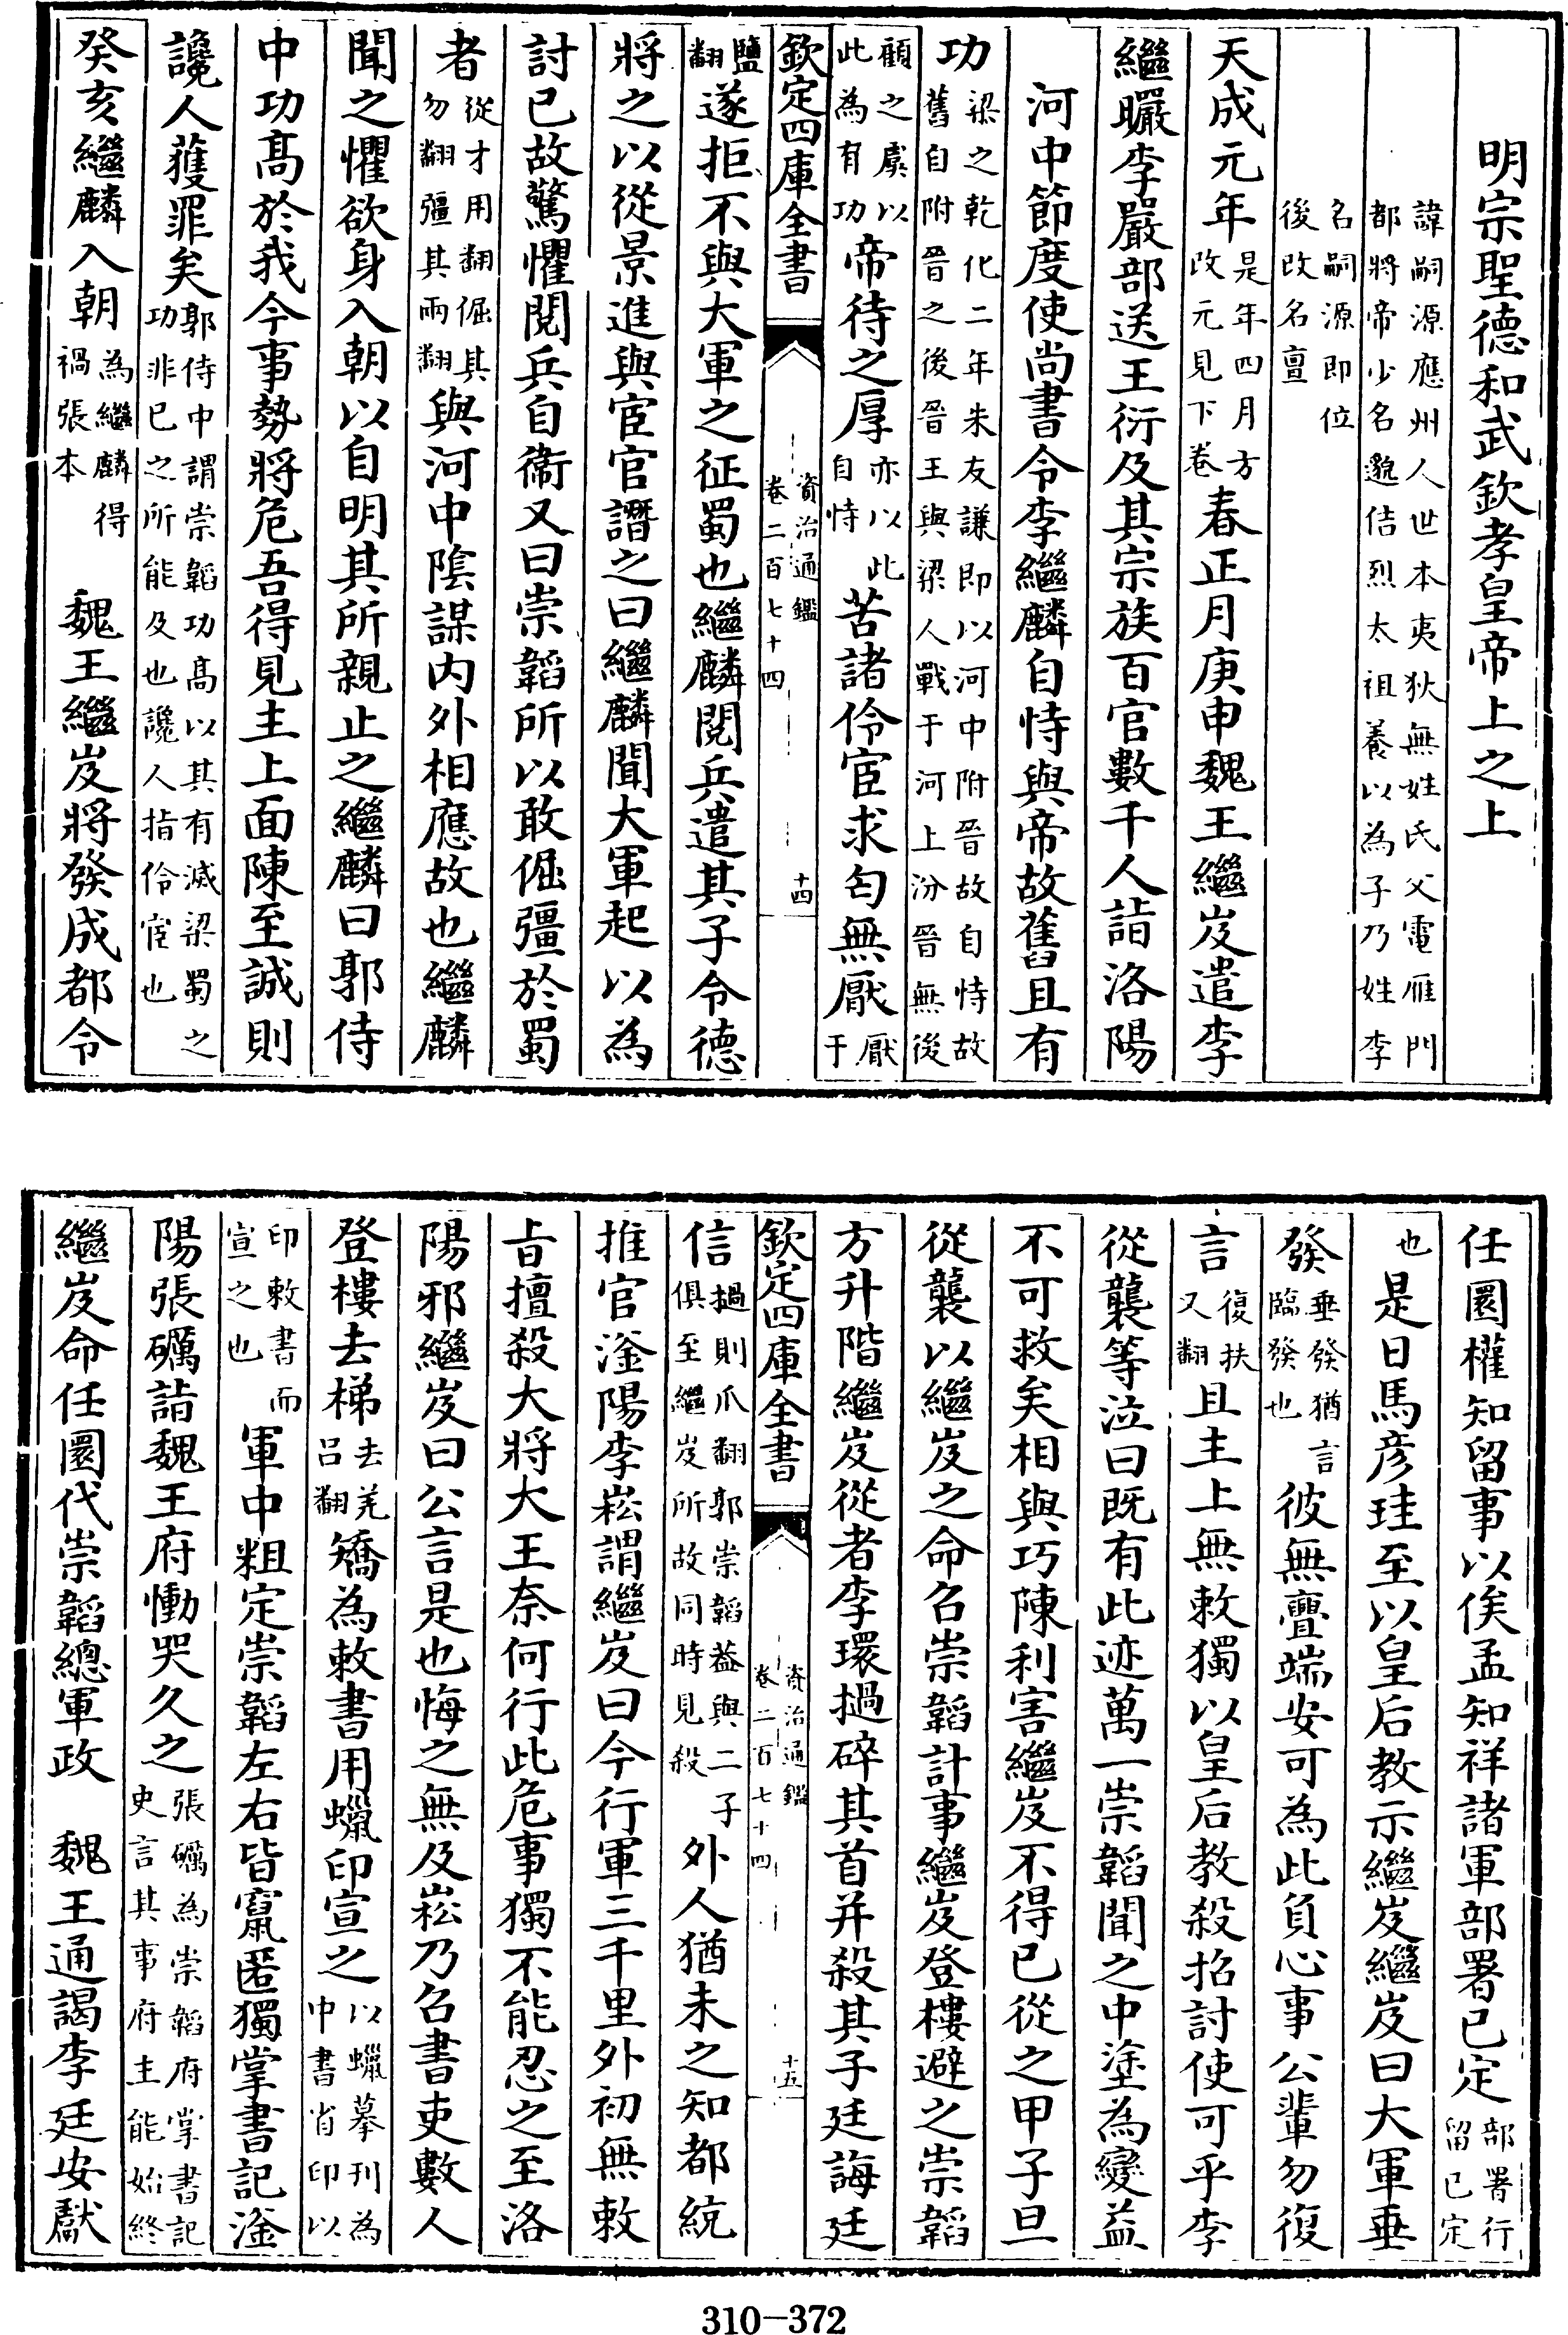 明宗聖德和武欽孝皇帝上之上
諱嗣源應州人世本夷狄無姓氏父電雁門
都將帝少名邈佶烈太祖養以為子乃姓李
名嗣源即位
後改名亶
天成元年是年四月方改元見下卷春正月庚申魏王繼岌遣李
繼曮李嚴部送王衍及其宗族百官數千人詣洛陽
河中節度使尚書令李繼麟自恃與帝故舊且有
功梁之乾化二年朱友謙即以河中附晉故自恃故舊自附晉之後晉王與梁人戰于河上汾晉無後
顧之虞以此為有功帝待之厚亦以此自恃苦諸伶宦求匄無厭厭于
鹽翻遂拒不與大軍之征蜀也繼麟閱兵遣其子令德
將之以從景進與宦官譖之曰繼麟聞大軍起以為
討已故驚懼閱兵自衞又曰崇韜所以敢倔彊於蜀
者從才用翻倔其勿翻彊其兩翻與河中陰謀内外相應故也繼麟
聞之懼欲身入朝以自明其所親止之繼麟曰郭侍
中功髙於我今事勢將危吾得見主上面陳至誠則
讒人獲罪矣郭侍中謂崇韜功髙以其有滅梁蜀之功非已之所能及也讒人指伶宦也
癸亥繼麟入朝為繼麟得禍張本　魏王繼岌將發成都令
欽定四庫全書
資治通鑑
卷二百七十四
十四
任圜權知留事以俟孟知祥諸軍部署已定部署行留已定
也是日馬彦珪至以皇后教示繼岌繼岌曰大軍垂
發垂發猶言臨發也彼無釁端安可為此負心事公輩勿復
言復扶又翻且主上無敕獨以皇后教殺招討使可乎李
從襲等泣曰既有此迹萬一崇韜聞之中塗為變益
不可救矣相與巧陳利害繼岌不得已從之甲子旦
從襲以繼岌之命召崇韜計事繼岌登樓避之崇韜
方升階繼岌從者李環撾碎其首并殺其子廷誨廷
信撾則爪翻郭崇韜葢與二子俱至繼岌所故同時見殺外人猶未之知都統
推官滏陽李崧謂繼岌曰今行軍三千里外初無敕
㫖擅殺大將大王奈何行此危事獨不能忍之至洛
陽邪繼岌曰公言是也悔之無及崧乃召書吏數人
登樓去梯去羌吕翻矯為敕書用蠟印宣之以蠟摹刊為中書省印以
印敕書而宣之也軍中粗定崇韜左右皆竄匿獨掌書記滏
陽張礪詣魏王府慟哭久之張礪為崇韜府掌書記史言其事府主能始終
繼岌命任圜代崇韜總軍政　魏王通謁李廷安獻
欽定四庫全書
資治通鑑
卷二百七十四
十五
310-372